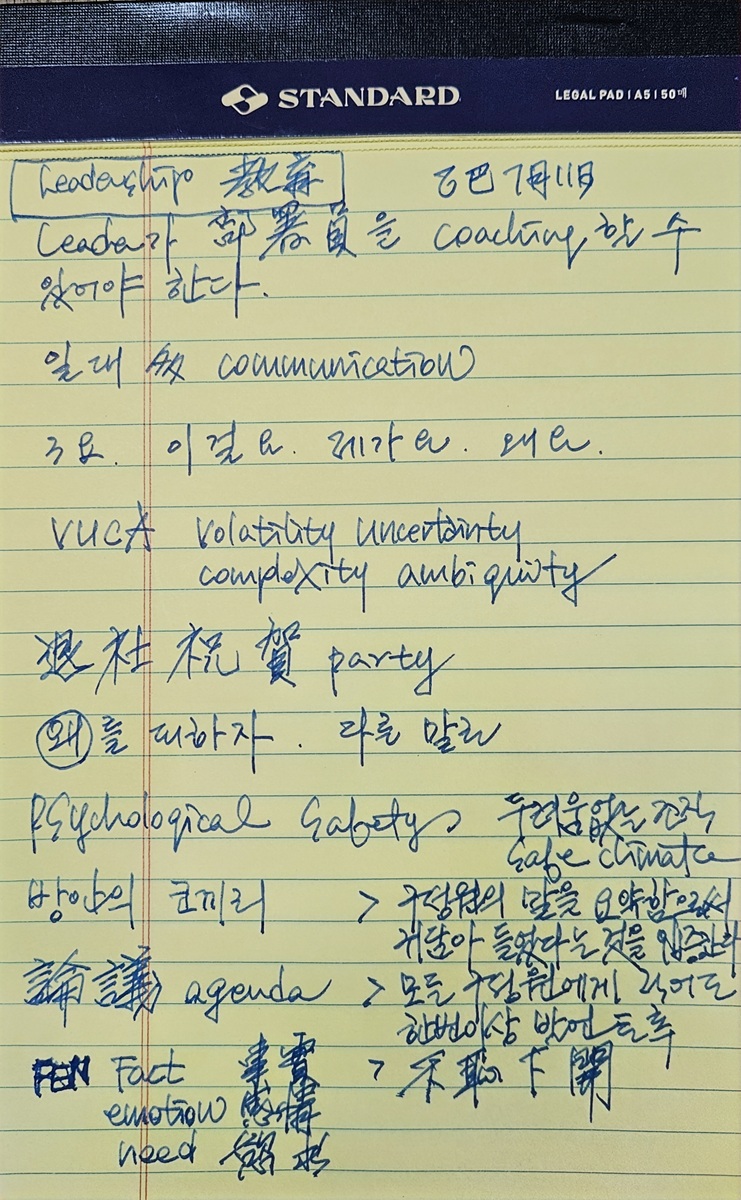 STANDARD
LEGAL PAD | A5 | 50매
Leadership 教育 乙巴 7月 11日
Leader가 部署員을 coaching 할 수
있어야 한다.
일대 多 communication
3요. 이걸요. 제가요. 왜요.
VUCA Volatility Uncertainty
complexity ambiguity
退社 祝賀 party
왜를 피하자. 다른 말로
Psychological Safety 두려움없는 조직
Safe climate
방안의 코끼리 > 구성원의 말을 요약함으로써
귀담아 들었다는 것을 입증한다
論議 agenda > 모든 구성원에게 적어도
한번이상 발언 토록
FEN Fact 事實 > 不恥下問
emotion 感情
need 欲求